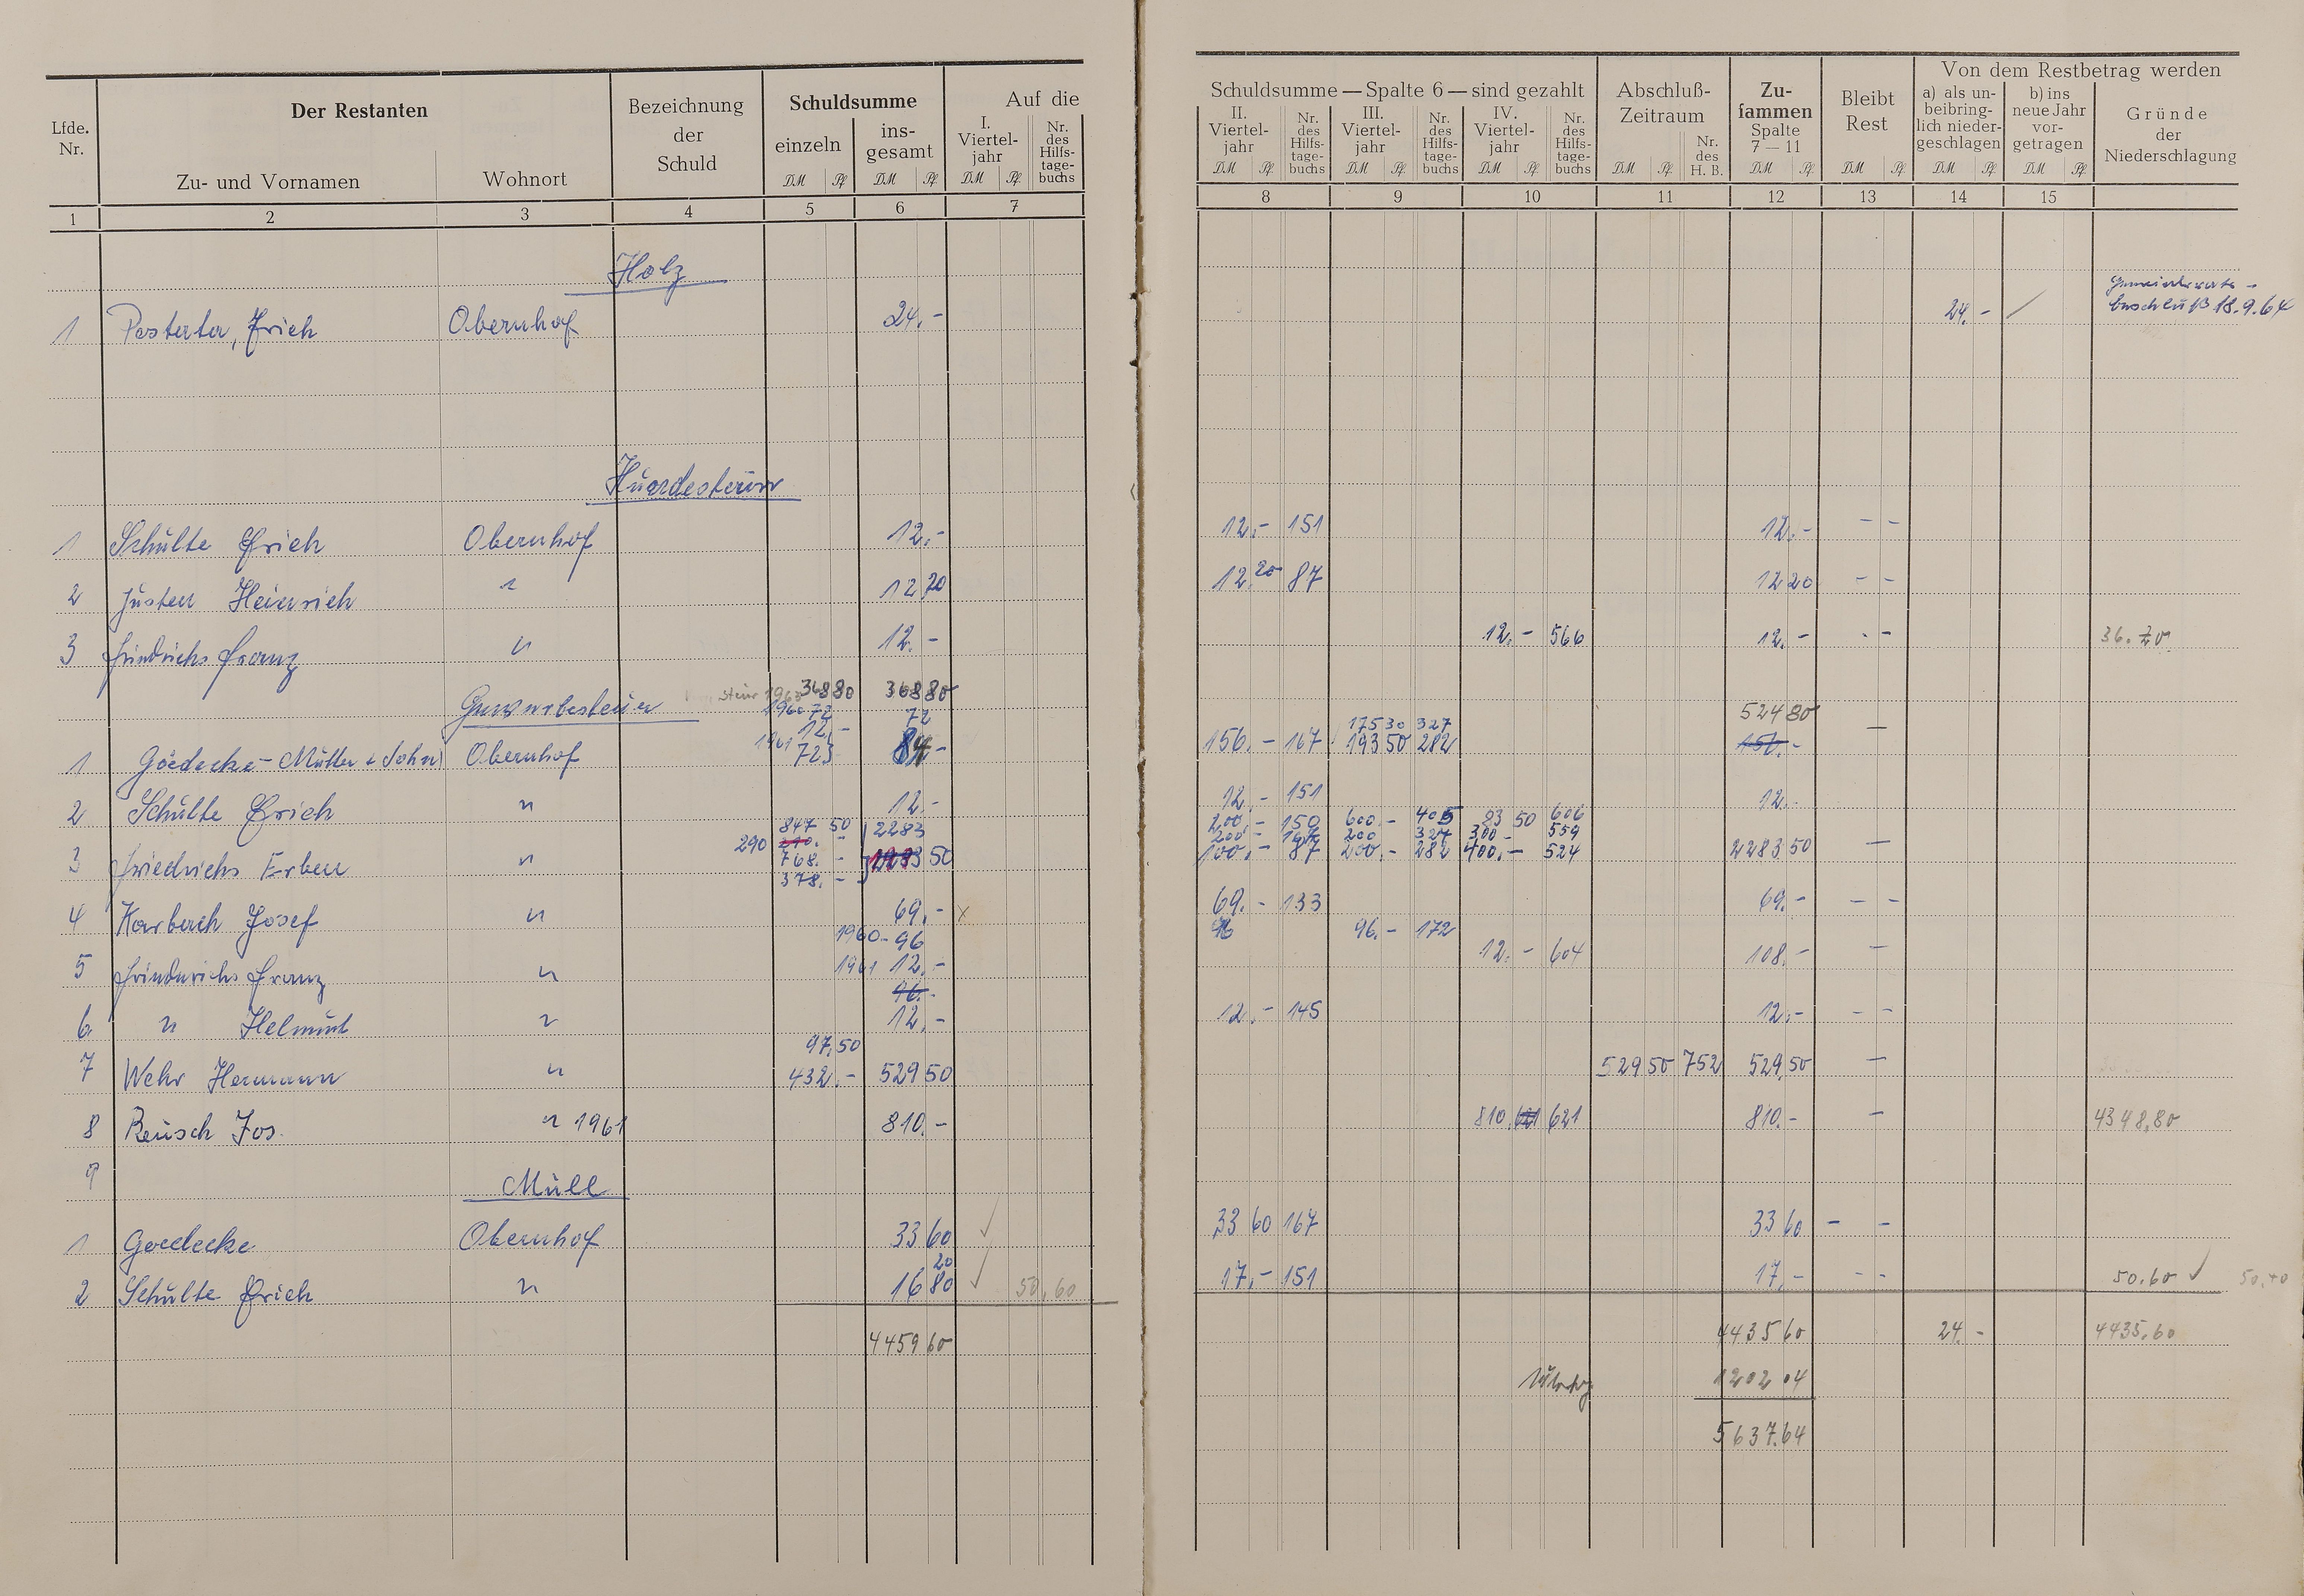 Lfde. Nr.
Der Restanten
Zu- und Vornamen
Wohnort
Bezeichnung der Schuld
Schuldsumme
einzeln
DM Pf.
ins-gesamt
DM Pf.
Auf die
I. Viertel-jahr
DM Pf.
Nr. des Hilfs-tage-buchs
Schuldsumme — Spalte 6 — sind gezahlt
II. Viertel-jahr
DM Pf.
Nr. des Hilfs-tage-buchs
III. Viertel-jahr
DM Pf.
Nr. des Hilfs-tage-buchs
IV. Viertel-jahr
DM Pf.
Nr. des Hilfs-tage-buchs
Abschluß-Zeitraum
DM Pf.
Nr. des H. B.
Zu-sammen
Spalte 7—11
DM Pf.
Bleibt Rest
DM Pf.
Von dem Restbetrag werden
a) als un-beibring-lich nieder-geschlagen
DM Pf.
b) ins neue Jahr vor-getragen
DM Pf.
Gründe der Niederschlagung
1 2 3 4 5 6 7 8 9 10 11 12 13 14 15
Holz
1 Erich Obernhof 24.- 24.-
beschluß 18.9.64
Hundesteuer
1 Schulte Erich Obernhof 12.- 12.- 151 12.- - -
2 Justen Heinrich " 12 20 12.20 87 12 20 - -
3 Friedrichs Franz " 12.- 12.- 566 12.- - - 36.20
Gewerbesteuer
368 80 368 80
1960 72 72
12.-
524 80
175 30 327
1 Goedecke-Müller + Sohn Obernhof 1961 723 84.- 156.- 167 193 50 282 156.- -
2 Schulte Erich " 12.- 12.- 151 12.-
847 50 2283 200.- 150 600.- 405 83 50 606
290 210.- 200.- 167 200 327 300.- 559
3 Friedrichs Erben " 768.- 50 100.- 87 200.- 282 400.- 524 2283 50 -
378.-
4 Karbach Josef " 69.- x 69.- 133 69.- - -
1960 - 96 96 96.- 172
5 Friedrichs Franz " 1961 12.- 12.- 604 108.- -
96.-
6. " Helmut " 12.- 12.- 145 12.- - -
97.50
7 Wehr Hermann " 432.- 529 50 529 50 752 529.50 -
8 Reusch Jos. " 1961 810.- 810. 621 621 810.- - 4348.80
9
Müll
1 Goedecke Obernhof 33 60 ✓ 33 60 167 33 60 - -
20
2 Schulte Erich " 16 80 ✓ 50,60 17.- 151 17.- - - 50.60 ✓
4459 60 4435 60 24.- 4435.60
1202 04
5637.64